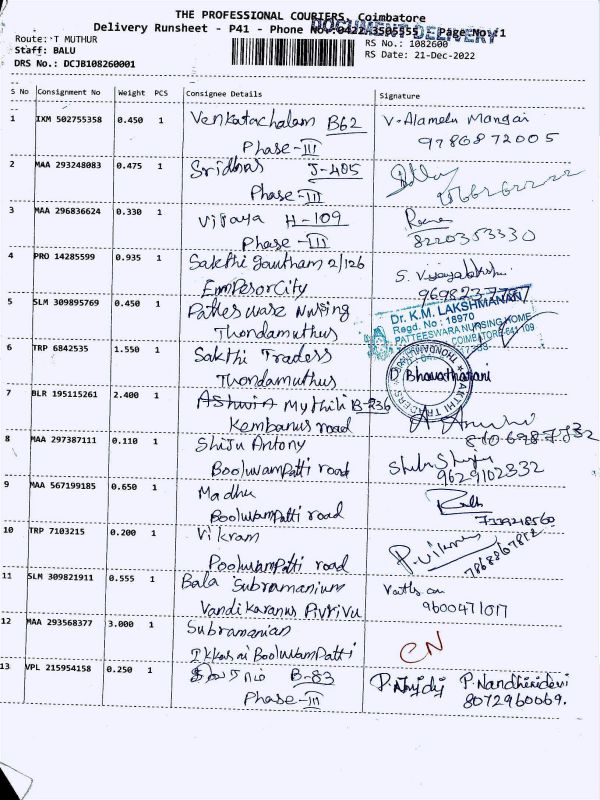 THE PROFESSIONAL COURIERS, Coimbatore
DOCUMENT DELIVERY
Delivery Runsheet - P41 - Phone No:.0422.3505555 Page No.:1
Route: T MUTHUR
Staff: BALU
DRS No.: DCJB108260001
RS No.: 1082600
RS Date: 21-Dec-2022
S No Consignment No Weight PCS Consignee Details Signature
1 IXM 502755358 0.450 1 Venkatachalam B62 V. Alamelu Mangai
Phase-III 9786872005
2 MAA 293248083 0.475 1 Sridhar J-405
Phase-III
3 MAA 296836624 0.330 1 Vijaya H-109
Phase-III 8220353330
4 PRO 14285599 0.935 1 Sakthi Goutham 2/126 S. Vijayalakshmi
Emperor City
5 SLM 309895769 0.450 1 Patteswara Nursing
Thondamuthur
Dr. K.M. LAKSHMANAN
Regd. No : 18970
PATTEESWARA NURSING HOME
COIMBATORE-641 109
6 TRP 6842535 1.550 1 Sakthi Traders
Thondamuthur
SAKTHI TRADERS
Bharatharani
7 BLR 195115261 2.400 1 Ashwin Mythili B-236
Kembanur road
8 MAA 297387111 0.110 1 Shiju Antony
Booluvampatti road 9629102332
9 MAA 567199185 0.650 1 Madhu
Booluvampatti road
10 TRP 7103215 0.200 1 Vikram P. Vikram
Pooluvampatti road
11 SLM 309821911 0.555 1 Bala Subramanium
Vandikaranur Pirivu 9600471017
12 MAA 293568377 3.000 1 Subramanian
Ikkarai Booluvampatti CN
13 VPL 215954158 0.250 1 சிவராம் B-83 P. Nandhinidevi
Phase-III 8072960069.